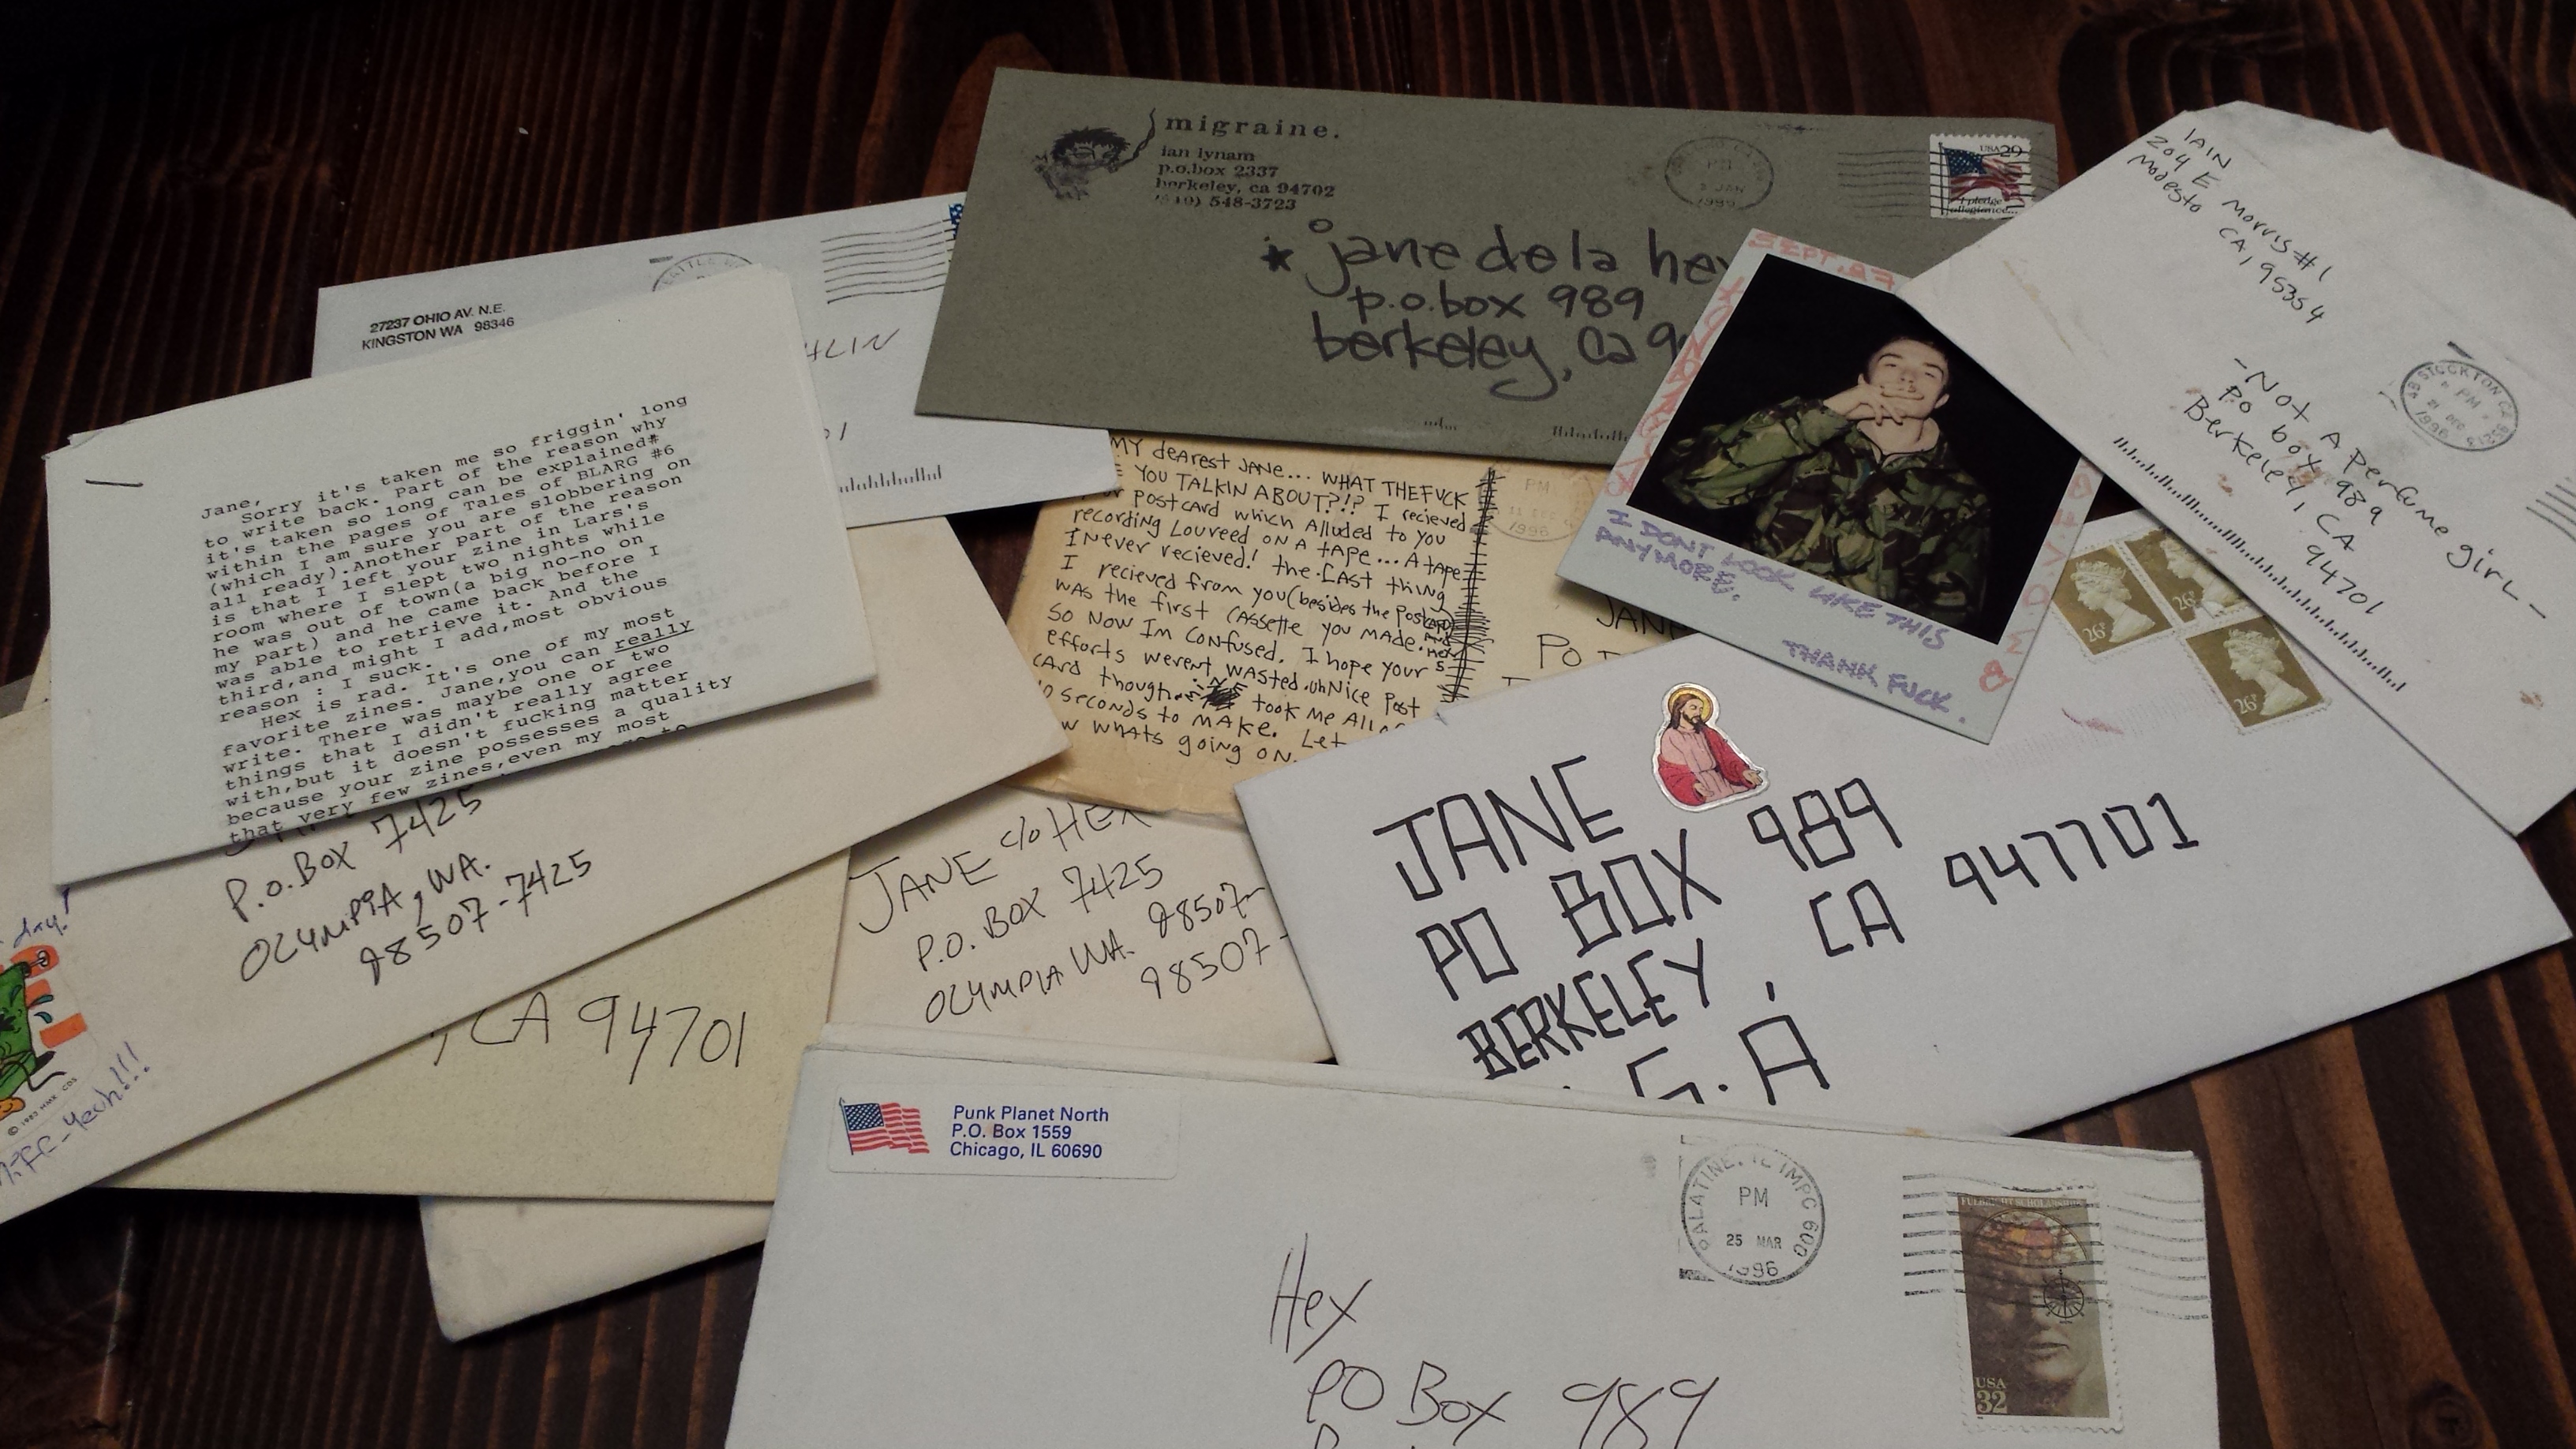 migraine.
ian lynam
p.o.box 2337
berkeley, ca 94702
548-3723
USA 29
I pledge
allegiance...
* jane de la hey
p.o.box 989
berkeley, ca 9
1996
IAIN
204 E Morris #1
Modesto CA, 95354
STOCKTON CA
PM
1996
-Not A Perfume Girl-
PO box 989
Berkeley, CA
94701
27237 OHIO AV. N.E.
KINGSTON WA 98346
Jane,
Sorry it's taken me so friggin' long
to write back. Part of the reason why
it's taken so long can be explained#
within the pages of Tales of BLARG #6
(which I am sure you are slobbering on
all ready).Another part of the reason
is that I left your zine in Lars's
room where I slept two nights while
he was out of town(a big no-no on
my part) and he came back before I
was able to retrieve it. And the
third,and might I add,most obvious
reason : I suck.
Hex is rad. It's one of my most
favorite zines. Jane,you can really
write. There was maybe one or two
things that I didn't really agree
with,but it doesn't fucking matter
because your zine possesses a quality
that very few zines,even my most
MY dEAREST JANE... WHAT THE FUCK
YOU TALKIN ABOUT?!? I recieved
POSTCARD which Alluded to you
recording Lou reed ON A tApe... A tApe
I Never recieved! the LAST thing
I recieved from you(besides the Postcard)
WAS the first CASSette you made.
SO NOW Im CONFused. I hope your
efforts werent WASTED. uhNice Post
CARD though. took me All
seconds to MAKE. Let
w whAts going ON.
PM
1996
JANE
PO
SEPT.97
I DONT LOOK LIKE THIS
ANYMORE.
THANK FUCK.
26P
26P
26P
JANE
PO BOX 989
BERKELEY, CA 947701
S.A
P.O.BOX 7425
OLYMPIA, WA.
98507-7425
JANE c/o HEX
P.O. BOX 7425
OLYMPIA WA. 98507-
98507-
day!
yeah!!!
, CA 94701
Punk Planet North
P.O. Box 1559
Chicago, IL 60690
PALATINE, IL IMPC 600
PM
25 MAR
1996
FULBRIGHT SCHOLARSHIPS
USA
32
Hex
PO Box 989